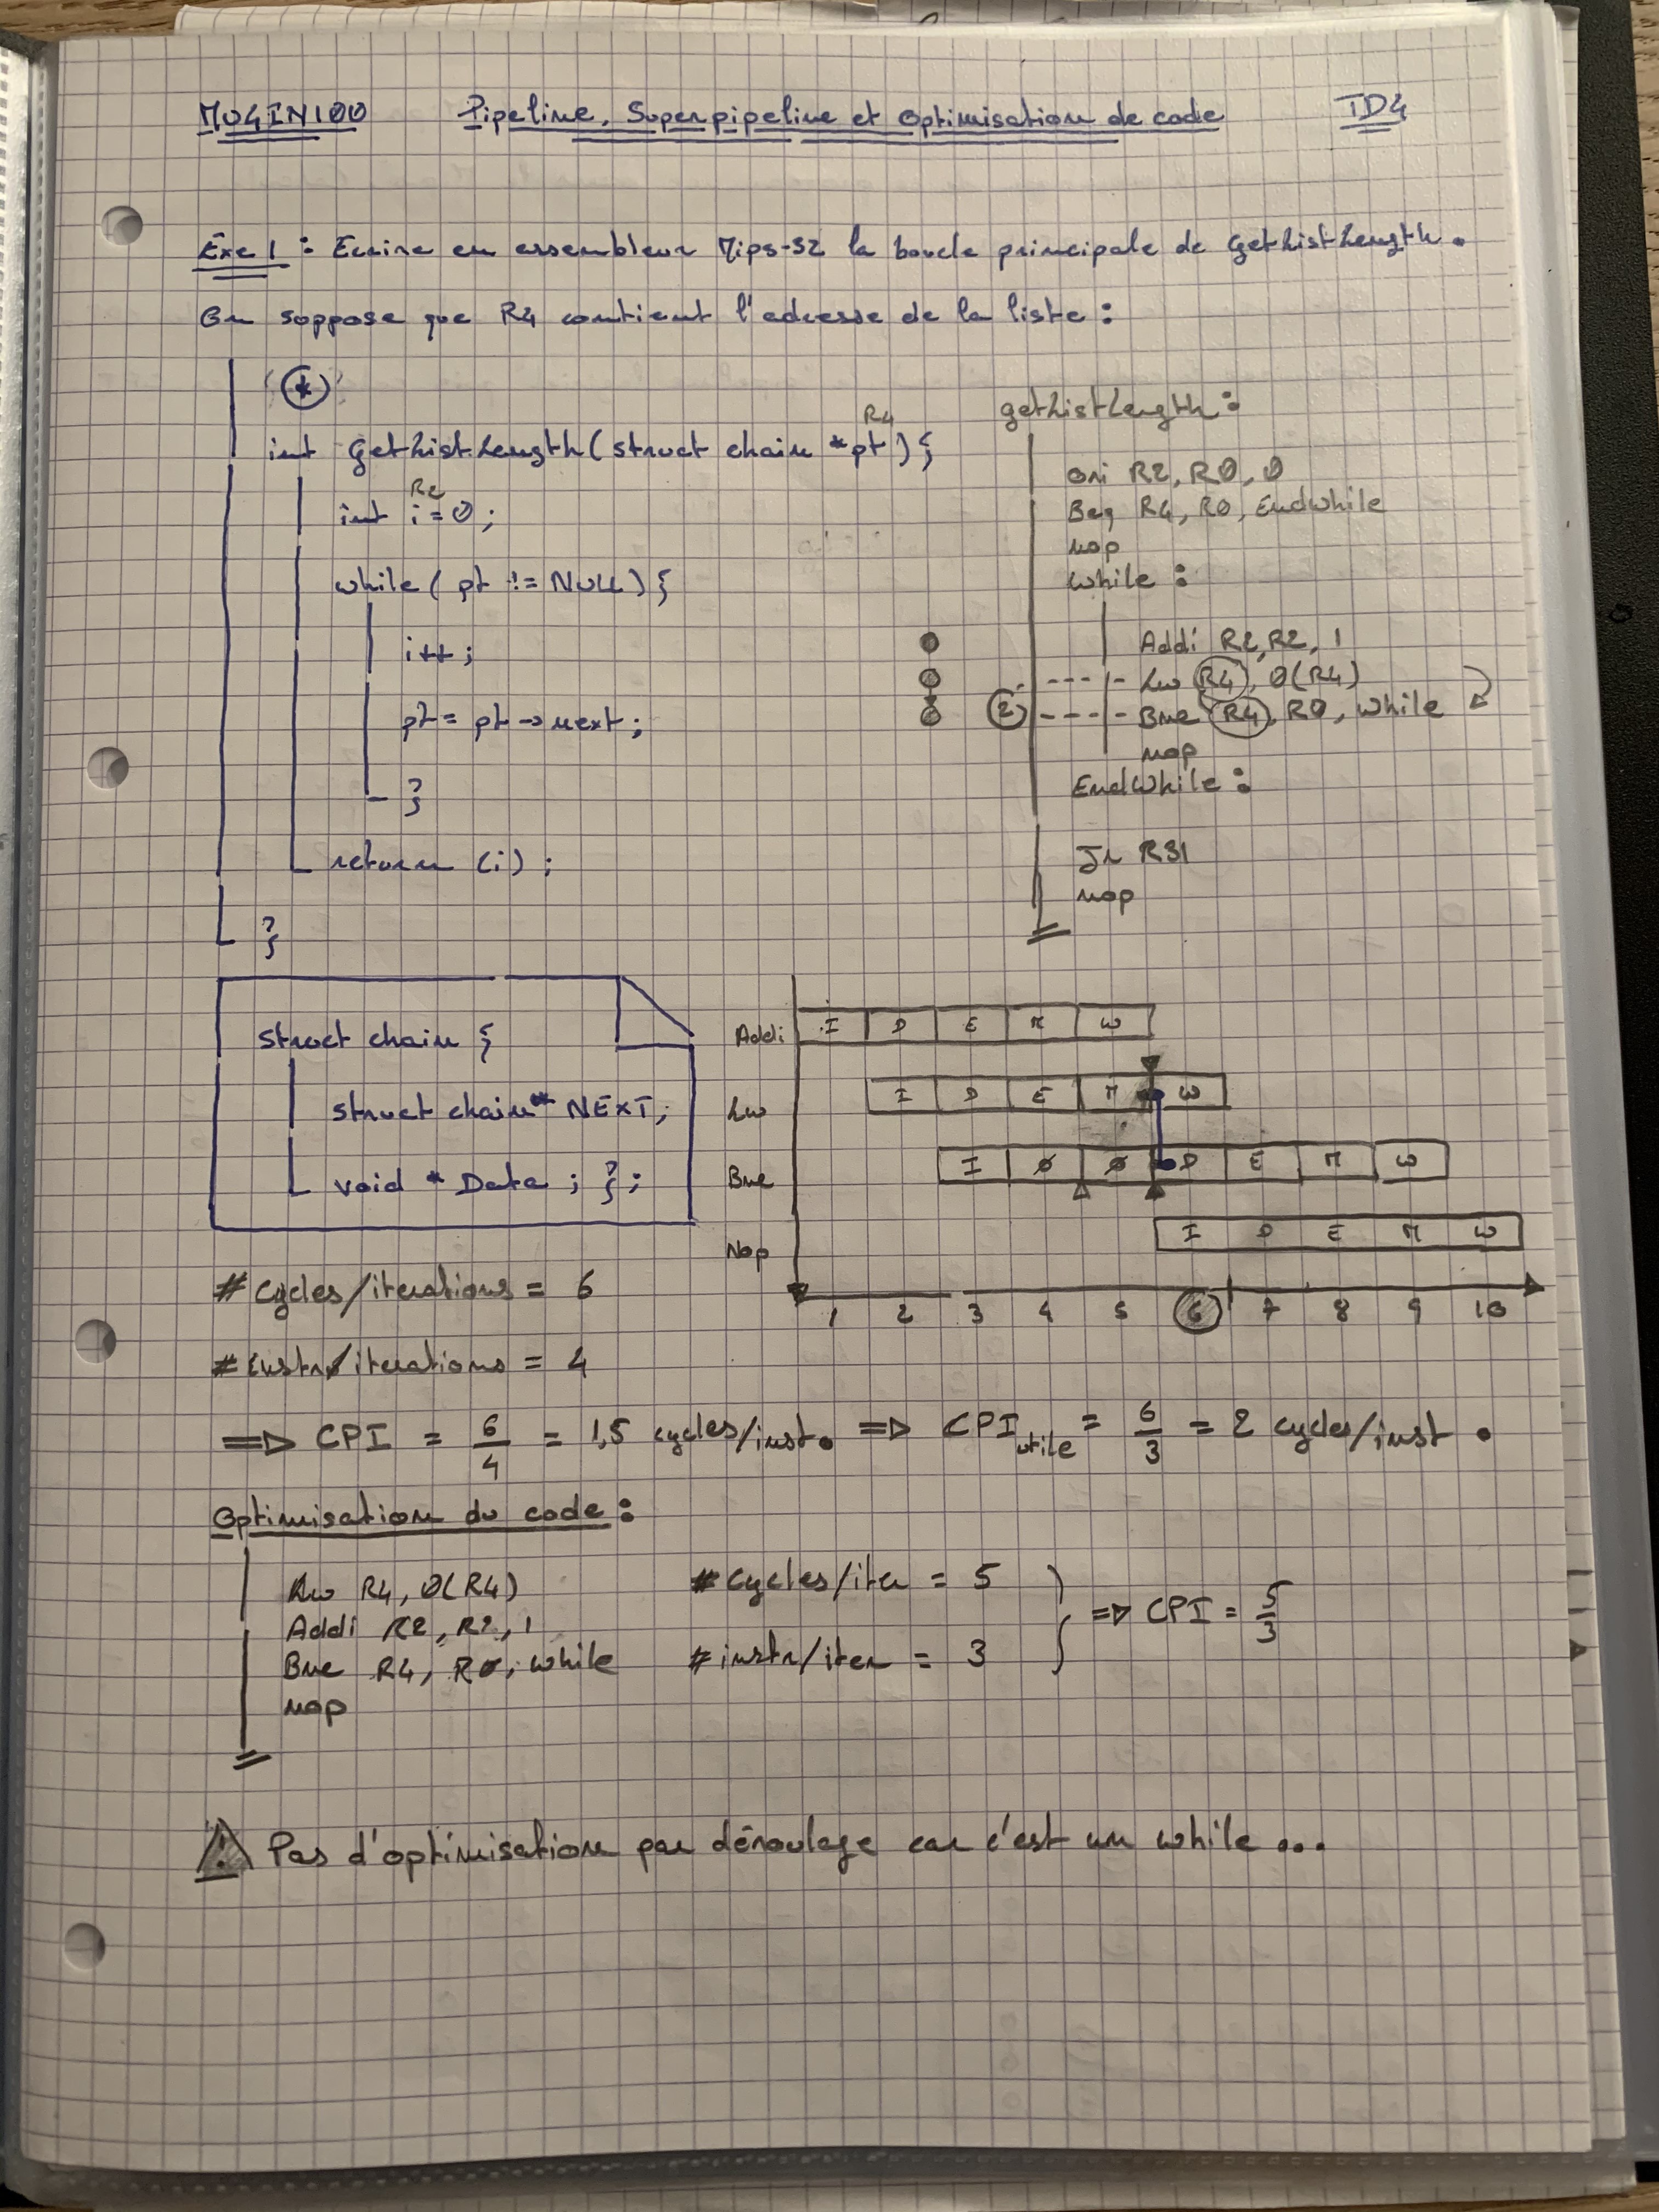 MU4IN100 Pipeline, Superpipeline et Optimisation de code TD4
Exe 1 : Ecrire en assembleur Mips-32 la boucle principale de GetListLength.
On suppose que R4 contient l'adresse de la liste :
*
R4
int GetListLength(struct chain *pt){
R2
int i=0;
while( pt != NULL){
i++;
pt = pt->next;
}
return (i);
}
getListLength:
Ori R2, R0, 0
Beq R4, R0, EndWhile
nop
While :
Addi R2, R2, 1
Lw R4, 0(R4)
2 Bne R4, R0, While
nop
EndWhile :
Jr R31
nop
struct chain {
struct chain* NEXT;
void * Data ; };
Addi I D E M W
Lw I D E M W
Bne I Ø Ø D E M W
Nop I D E M W
1 2 3 4 5 6 7 8 9 10
# cycles/iterations = 6
# instr/iterations = 4
=> CPI = 6/4 = 1,5 cycles/inst. => CPI utile = 6/3 = 2 cycles/inst .
Optimisation du code :
Lw R4, 0(R4)
Addi R2, R2, 1
Bne R4, R0, While
nop
# cycles/iter = 5
# instr/iter = 3
} => CPI = 5/3
! Pas d'optimisation par déroulage car c'est un while ...